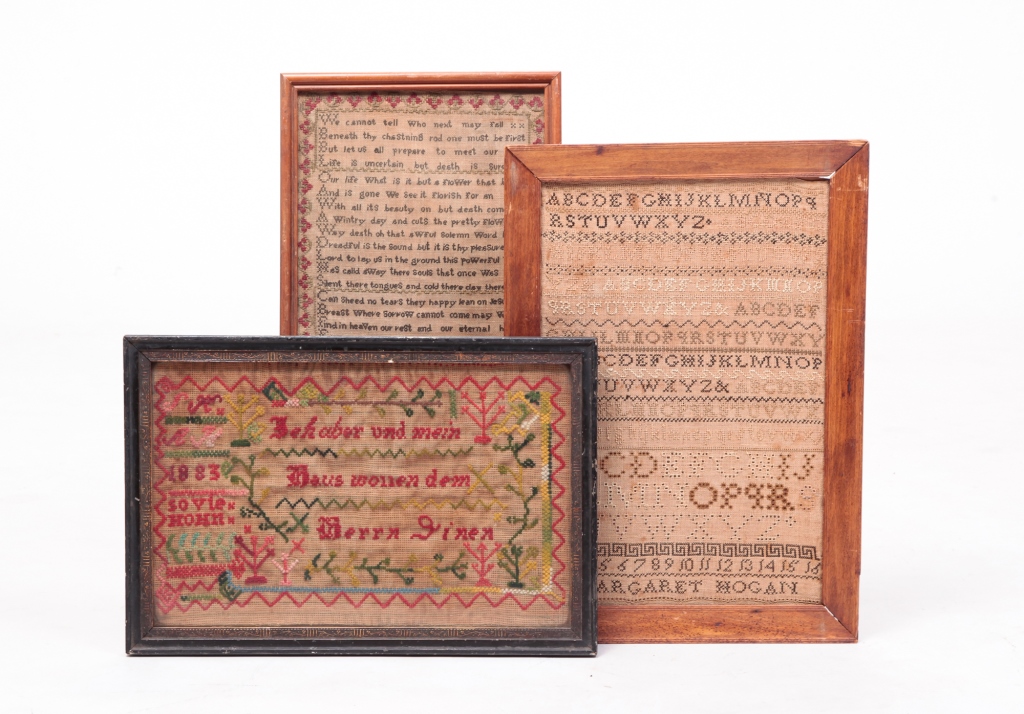 We cannot tell Who next may Fall
Beneath thy chastning rod one must be First
But let us all prepare to meet our
Life is uncertain but death is Sure
Our life What is it but a Flower that
And is gone We See it Florish for an
With all its beauty on but death com
A Wintry day and cuts the pretty Flow
Way death oh that awFul Solemn Word
Dreadful is the Sound but it is thy pleasure
Lord to lay us in the ground this poWerFul
Has calld aWay there Souls that once Was
Sent there tongues and cold there clay there
Can Sheed no tears they happy lean on Jesu
Breast Where SorroW cannot come may W
And in heaven our rest and our eternal h
ABCDEFGHIJKLMNOPq
RSTUVWXYZ
ABCDEFGHIJKLMNOP
qRSTUVWXYZ& ABCDEF
LMNOPqRSTUVWXY
CDEFGHIJKLMNOP
UVWXYZ& ABCDEF
LMNOPqRSTUVWX
CDEFGHIJ
MNOPqR
VWXYZ
5 6 7 8 9 10 11 12 13 14 15 16
ARGARET HOGAN
Ich aber vnd mein
1883
Haus wollen dem
sovie
HOMN
Herrn Dinen